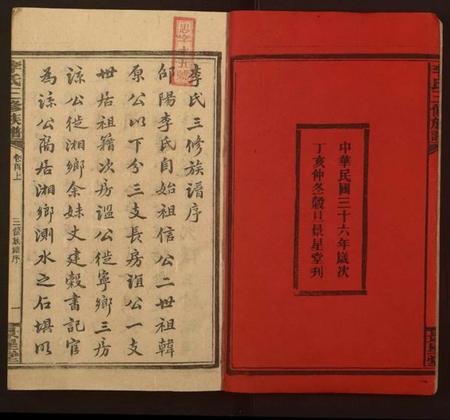 中華民國三十六年歲次
丁亥仲冬穀旦景星堂刊
李氏三修族譜序
邵陽李氏自始祖信公二世祖韓
原公以下分三支長房誼公一支
世居祖籍次房謐公徙寧鄉三房
諒公徙湘鄉余妹丈建穀書記官
為諒公裔居湘鄉測水之石堪以
李氏三修族譜
卷首上
三修族譜序